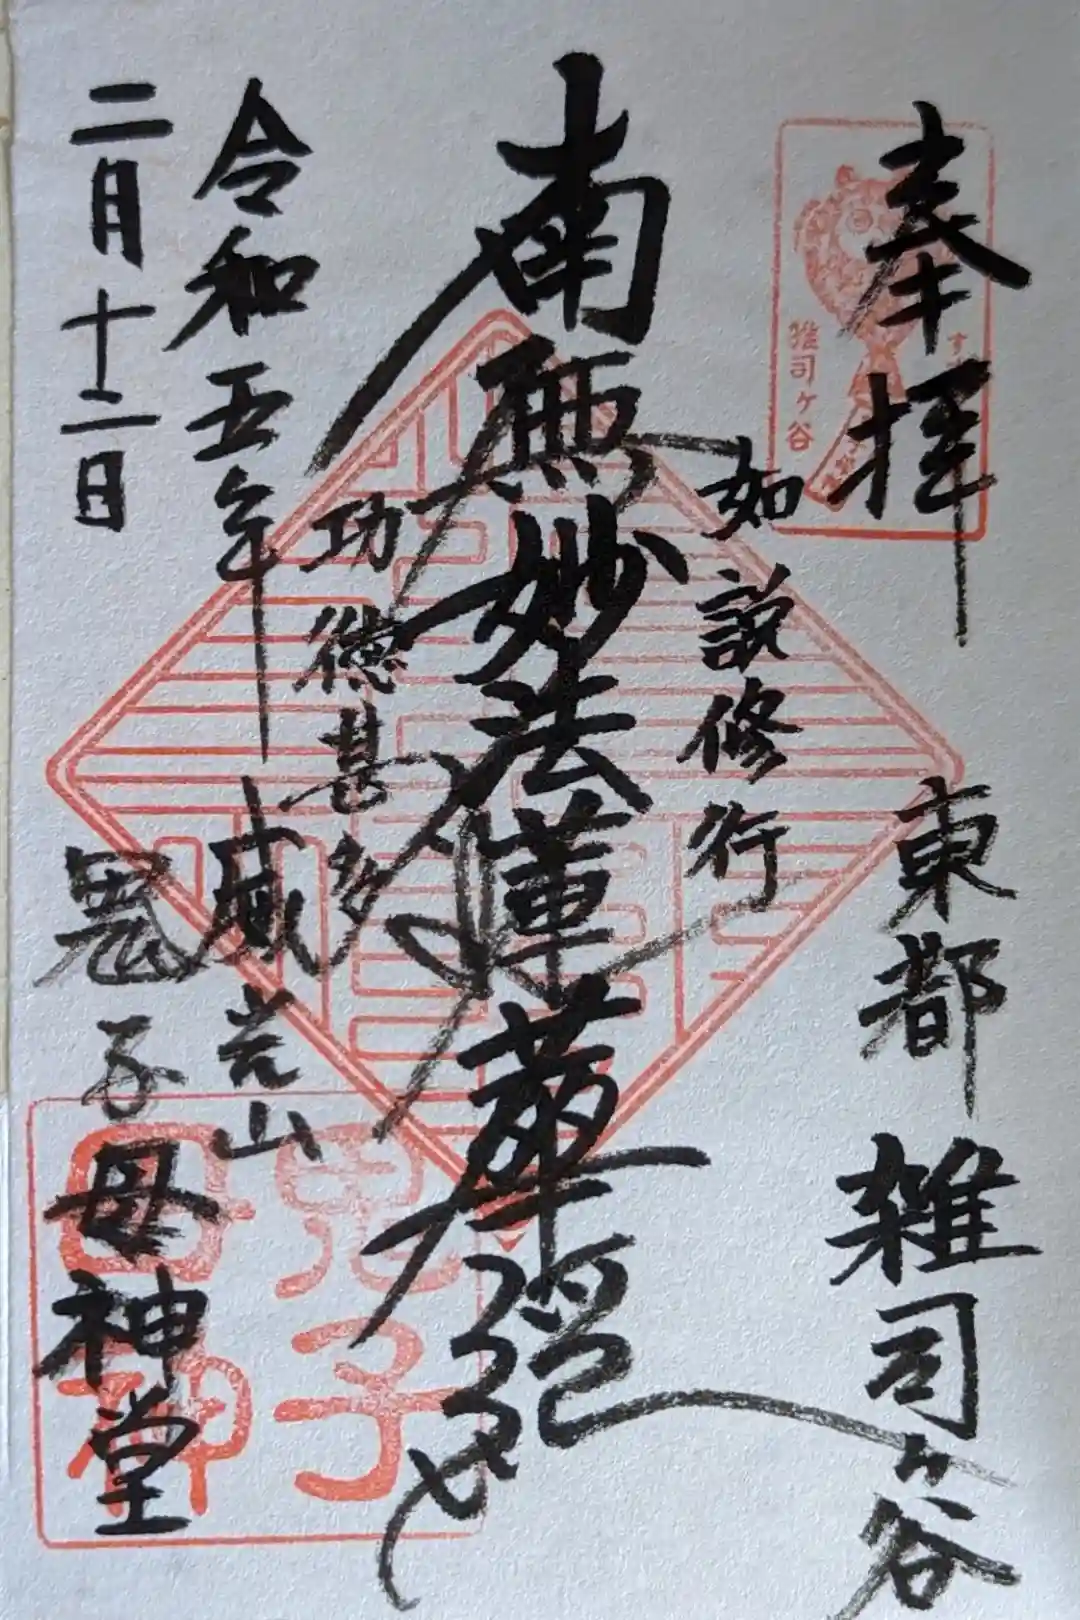 奉拝
東都 雑司ヶ谷
雑司ヶ谷
如説修行
南無妙法蓮華経
功徳甚多
令和五年
二月十二日
威光山
鬼子母神堂
鬼子
母神